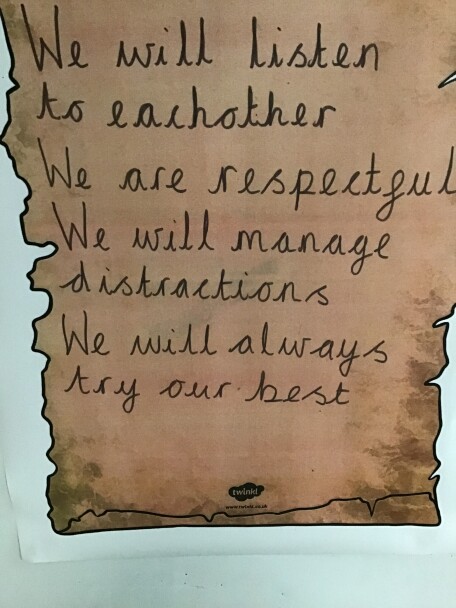 We will listen
to eachother
We are respectful
We will manage
distractions
We will always
try our best
twinkl
www.twinkl.co.uk